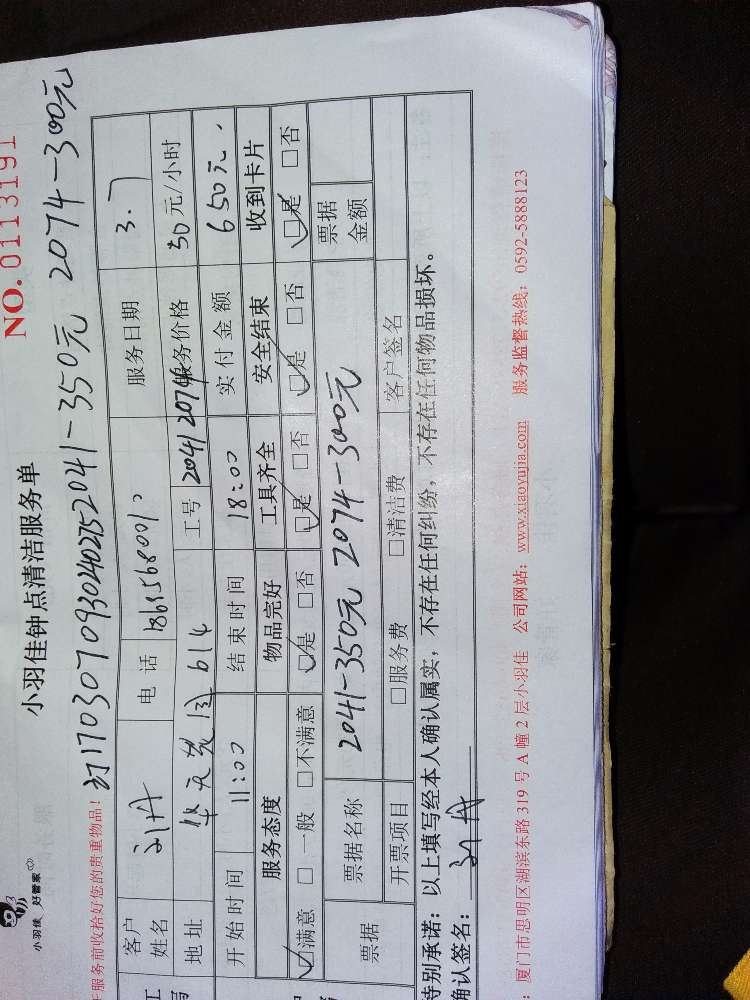 小羽佳 好管家
小羽佳钟点清洁服务单
NO. 0113191
服务前收拾好您的贵重物品!
2041-350元 2074-300元
客户姓名 电话 服务日期 3.7
地址 614 工号 2041 2074 服务价格 50元/小时
开始时间 11:00 结束时间 18:00 实付金额 650元.
服务态度 物品完好 工具齐全 安全结束 收到卡片
☑满意 □一般 □不满意 ☑是 □否 ☑是 □否 ☑是 □否 ☑是 □否
票据 票据名称 2041-350元 2074-300元 票据金额
开票项目 □服务费 □清洁费 客户签名
特别承诺:以上填写经本人确认属实,不存在任何纠纷,不存在任何物品损坏。
确认签名:
:厦门市思明区湖滨东路 319 号 A 幢 2 层小羽佳 公司网站:www.xiaoyujia.com 服务监督热线:0592-5888123